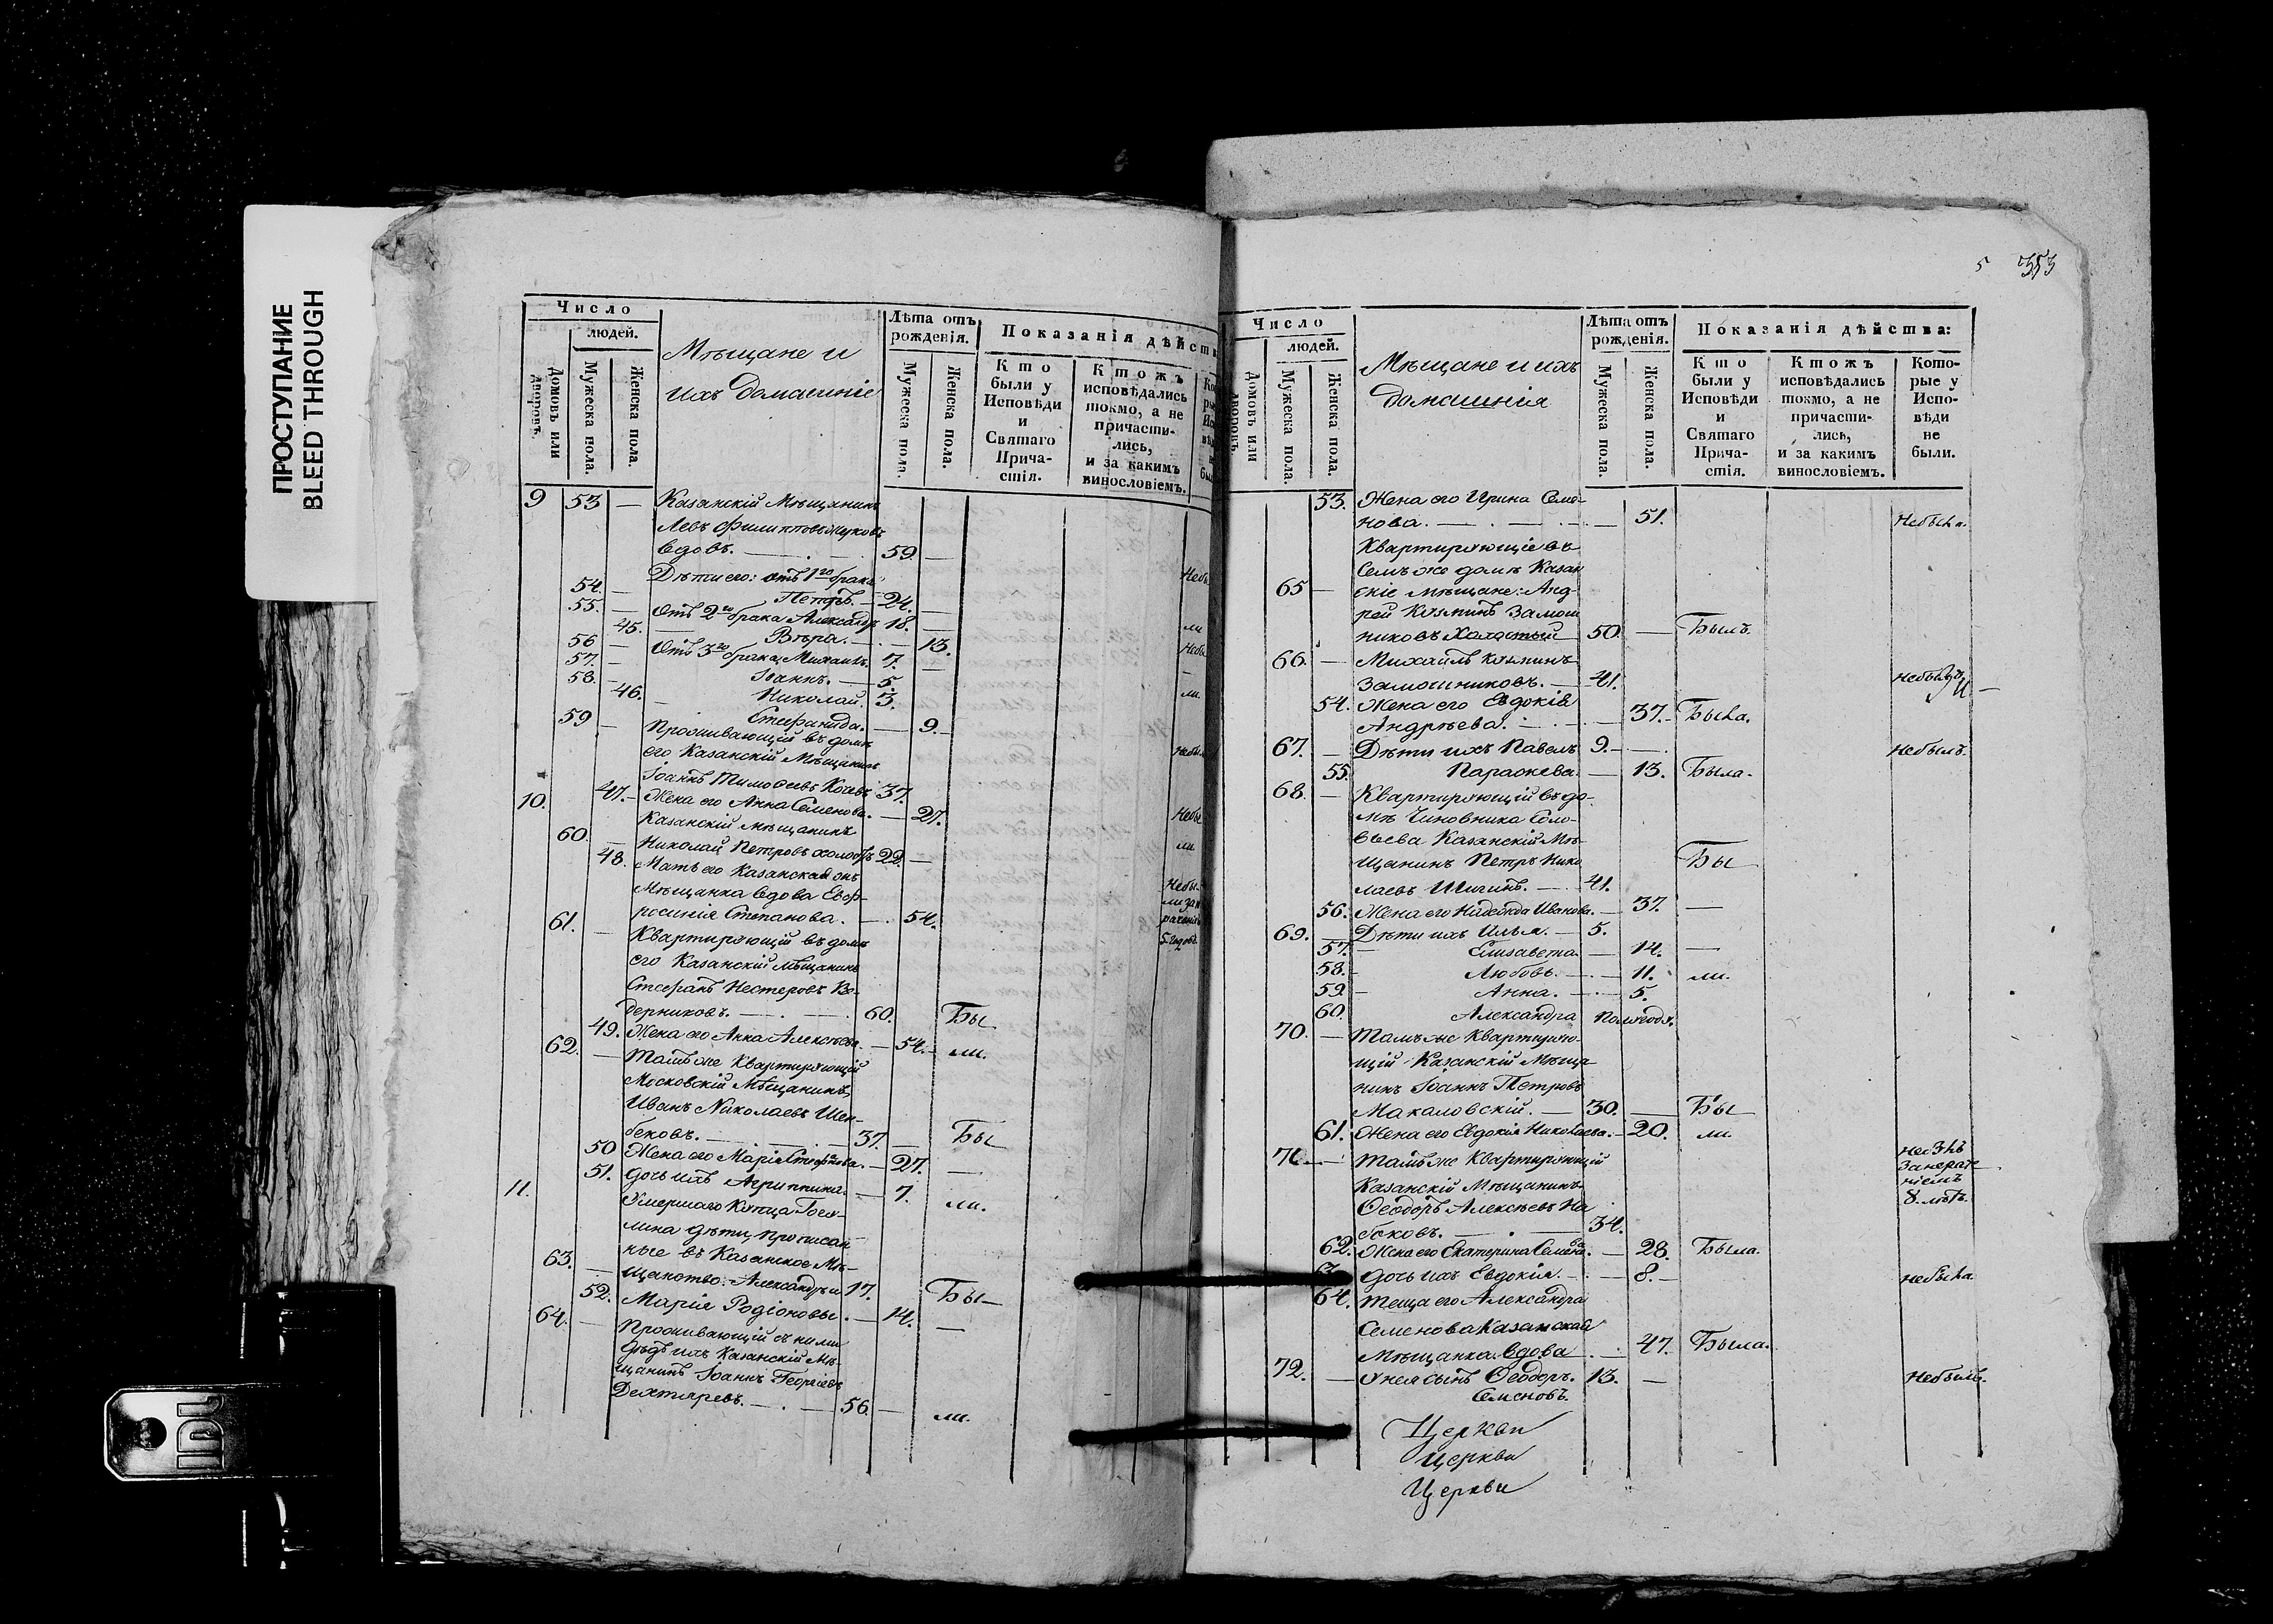 ПРОСТУПАНИЕ
BLEED THROUGH
Число
людей.
Домовъ или дворовъ.
Мужеска пола.
Женска пола.
Мѣщане и
ихъ домашніе
Лѣта отъ
рожденія.
Мужеска пола.
Женска пола.
Показанія дѣйств
Кто
были у
Исповѣди
и
Святаго
Прича-
стія.
Ктожъ
исповѣдались
токмо, а не
причасти-
лись,
и за какимъ
винословіемъ.
9 53 — Казанскій Мѣщанинъ
Левъ Филипповъ Жуковъ
вдовъ. — 59. —
Дѣти его: отъ 1го брака Небы
54. — Петръ. — 24. —
55. — Отъ 2го брака Александръ 18. — ли
45. — Вѣра. — 13. Небы
56 — Отъ 3го брака, Михаилъ. 7. —
57. — Іоаннъ. — 5. ли.
58. — Николай. 3.
46. Стефанида. — 9. —
59 — Проживающій въ домѣ
его Казанскій Мѣщанинъ Небы
Іоаннъ Тимофеевъ 37.
47. — Жена его Анна Семенова. — 27.
10. Казанскій Мѣщанинъ Небы
60. — Николай Петровъ холостъ 22. — ли
48. Мать его Казанская
Мѣщанка вдова Евф- Небы-
росинія Степанова. — 54. ли за н
61. — Квартирующій въ домѣ
его Казанскій Мѣщанинъ
Стефанъ Нестеровъ
дерниковъ. — 60. Бы
49. Жена его Анна Алексѣева. — 54. — ли.
62. — Тамъ же Квартирующій
Московскій Мѣщанинъ,
Иванъ Николаевъ Шен-
бековъ. — 37. — Бы
50 Жена его Марія Стефанова. — 27. —
51. Дочь ихъ Агриппина. — 7. ли.
11. Умершаго Купца
дѣти, прописан
ные въ Казанское Мѣ-
63. — щанство: Александръ и 17. Бы —
52. Марія Родіоновы. — 14. —
64. — Проживающій съ ними
Дѣдъ ихъ Казанскій Мѣ-
щанинъ Іоаннъ Георгіевъ
Дехтяревъ. — 56. — ли.
5 353
Число
людей.
Домовъ или дворовъ.
Мужеска пола.
Женска пола.
Мѣщане и ихъ
домашнія
Лѣта отъ
рожденія.
Мужеска пола.
Женска пола.
Показанія дѣйства:
Кто
были у
Исповѣди
и
Святаго
Прича-
стія.
Ктожъ
исповѣдались
токмо, а не
причасти-
лись,
и за какимъ
винословіемъ.
Кото-
рые у
Испо-
вѣди
не
были.
53. Жена его Ирина Семе-
нова. — 51. Небыла.
Квартирующіе въ
Семъ же домѣ Казан
65 — скіе Мѣщане: Анд-
рей Козминъ Замош
никовъ Холостый 50. — Былъ.
66. — Михаилъ Козминъ
Замошниковъ. — 41. небылъ
54. Жена его Евдокія
Андрѣева. — 37. — Была.
67. — Дѣти ихъ Павелъ 9. — небылъ.
55. Параскева. — 13. Была.
68. — Квартирующій въ до-
мѣ Чиновника Соло-
вьева Казанскій Мѣ-
щанинъ Петръ Нико Бы
лаевъ Шигинъ. — 41.
56. Жена его Надежда Иванова. — 37. —
69. — Дѣти ихъ Илья. — 5.
57. — Елизавета. — 14. —
58. — Любовь. — 11. ли.
59. — Анна. — 5.
60. Александра полгода.
70. — Тамъ же Квартирую-
щій Казанскій Мѣща
нинъ Іоаннъ Петровъ
Макаловскій. — 30. — Бы
61. Жена его Евдокія Николаева. — 20. ли.
71. — Тамъ же Квартирующій небылъ
Казанскій Мѣщанинъ занераде
ніемъ
Ѳеодоръ Алексѣевъ На 8. лѣтъ.
боковъ. — 34.
62. Жена его Екатерина Семенова. — 28. Была.
63. Дочь ихъ Евдокія. — 8. — небыла
64. Теща его Александра
Семенова Казанская
Мѣщанка вдова — 47. Была.
72. — У нея сынъ Ѳеодоръ. 13. — Небылъ.
Семеновъ.
Церкви
Церкви
Церкви